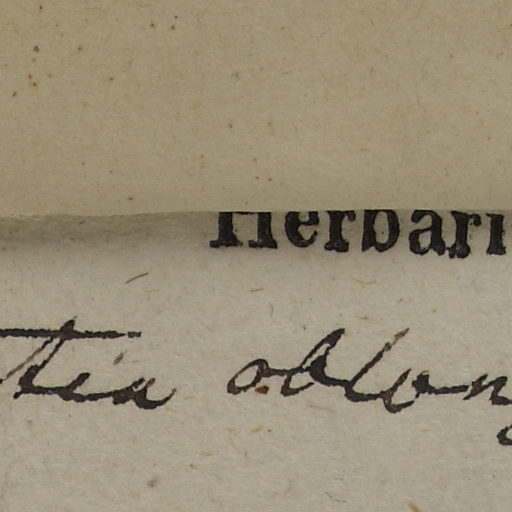 Herbari
tia oblong